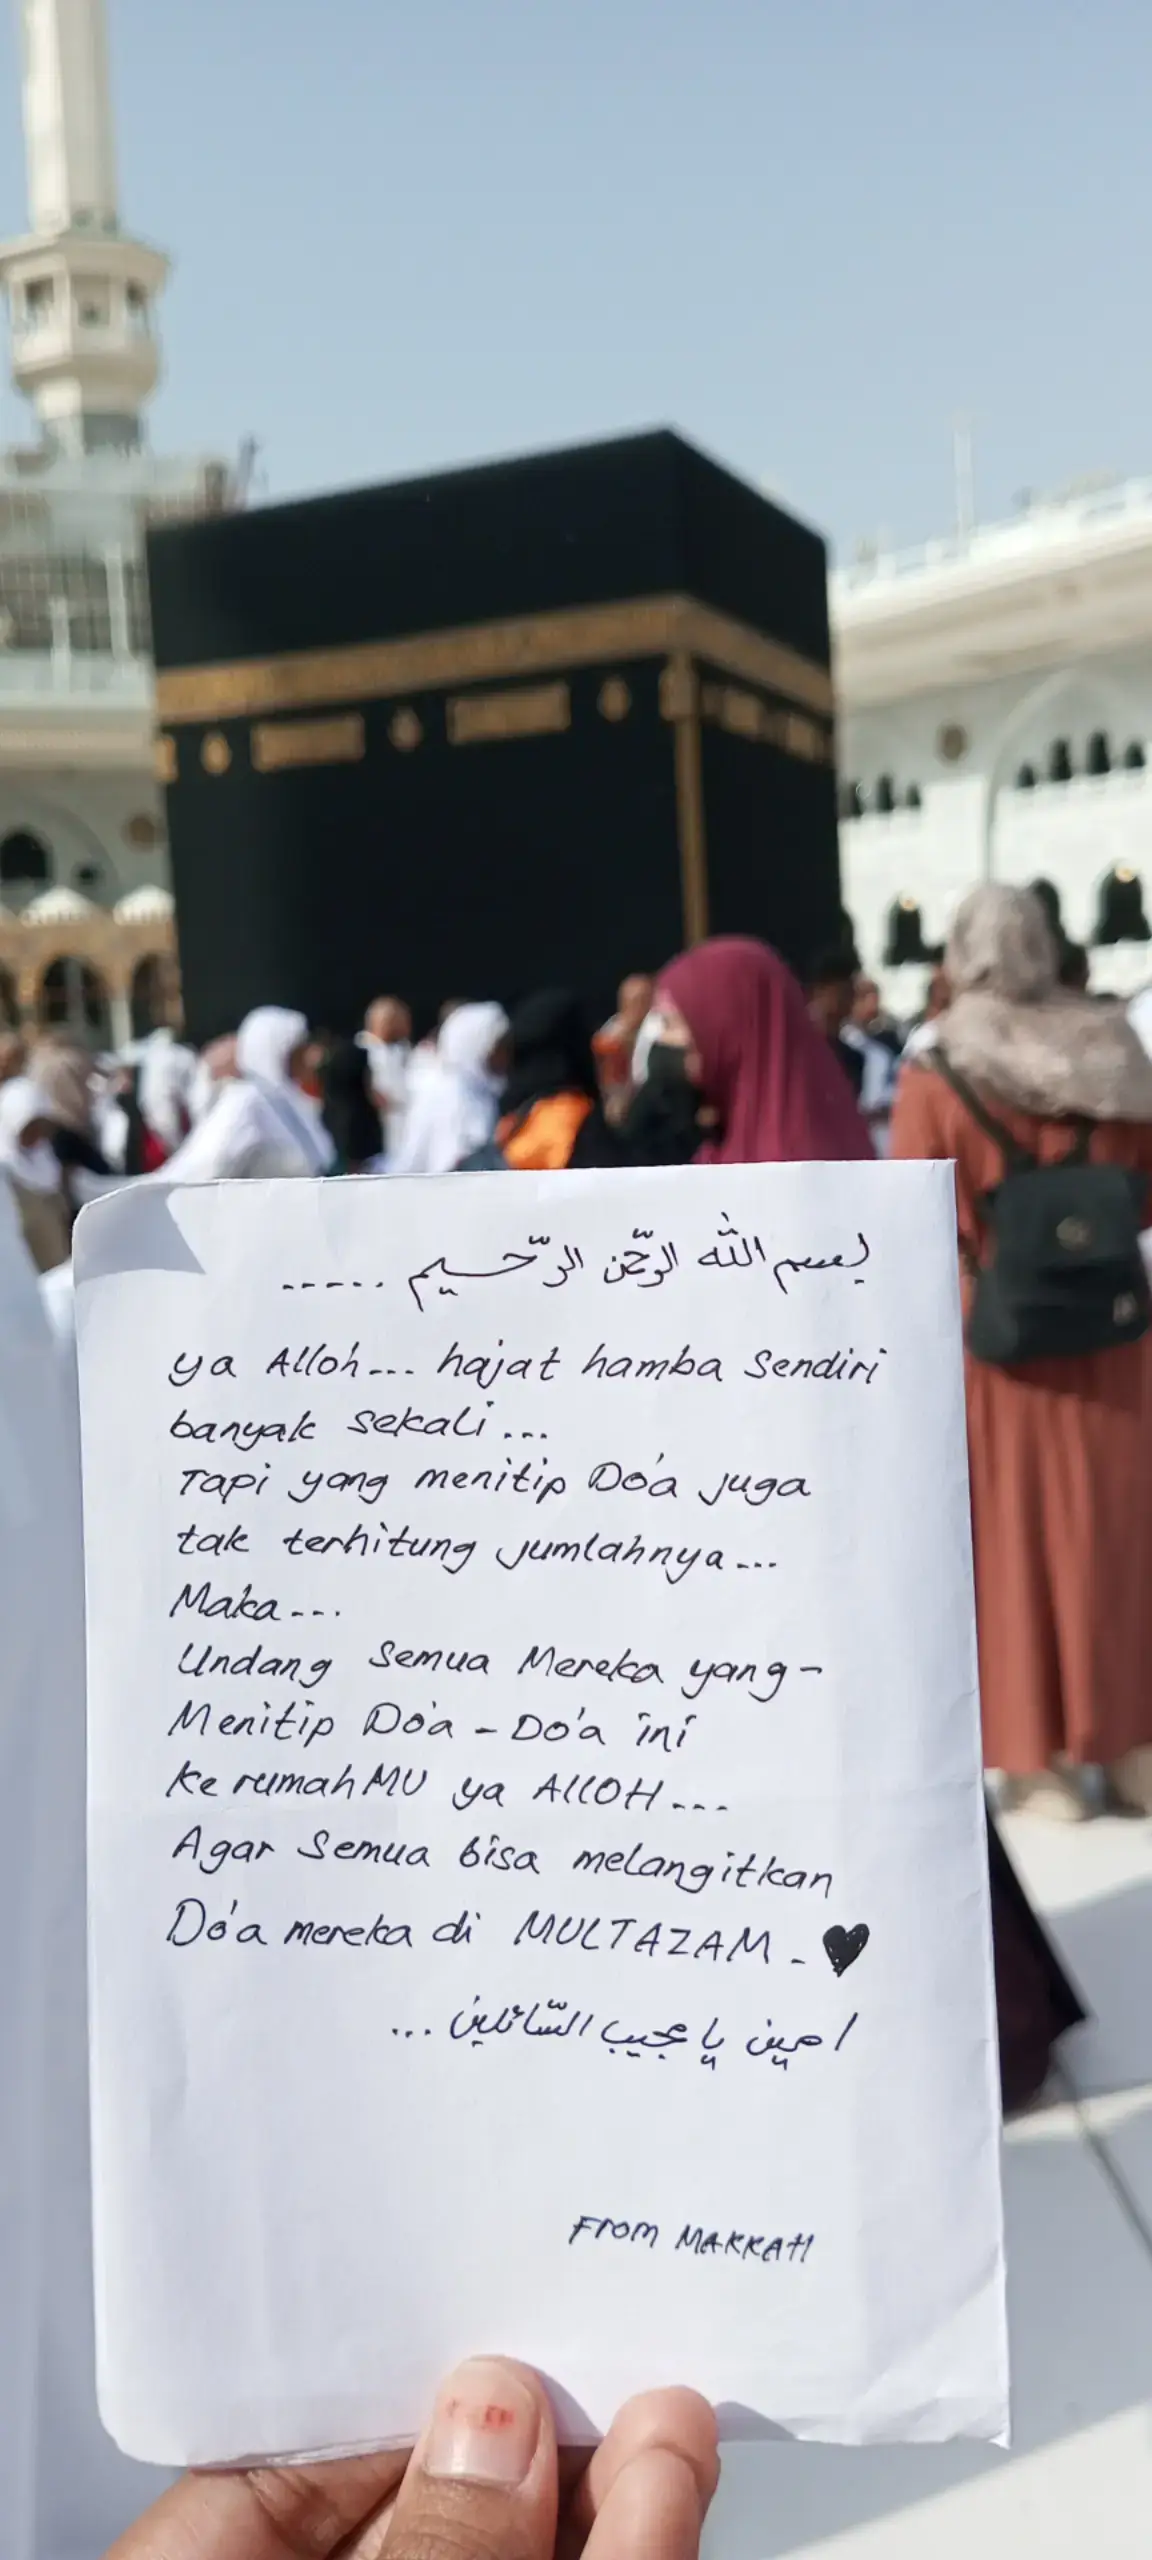 بسم الله الرّحمن الرّحيم .....
ya Alloh... hajat hamba Sendiri
banyak sekali...
Tapi yang menitip Do'a juga
tak terhitung jumlahnya...
Maka...
Undang Semua Mereka yang-
Menitip Do'a - Do'a ini
ke rumahMU ya ALLOH...
Agar Semua bisa melangitkan
Do'a mereka di MULTAZAM - ♥
امين يا مجيب السّائلين ...
From MAKKAH